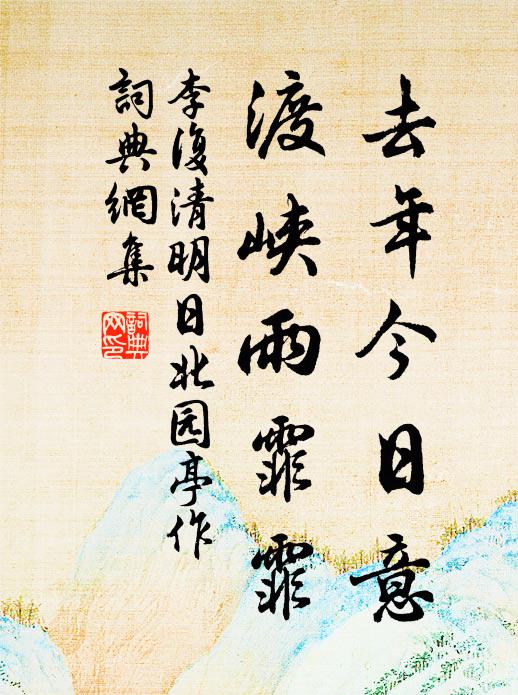 去年今日意
渡峡雨霏霏
李復清明日北园亭作
詞典網集
詞典网印